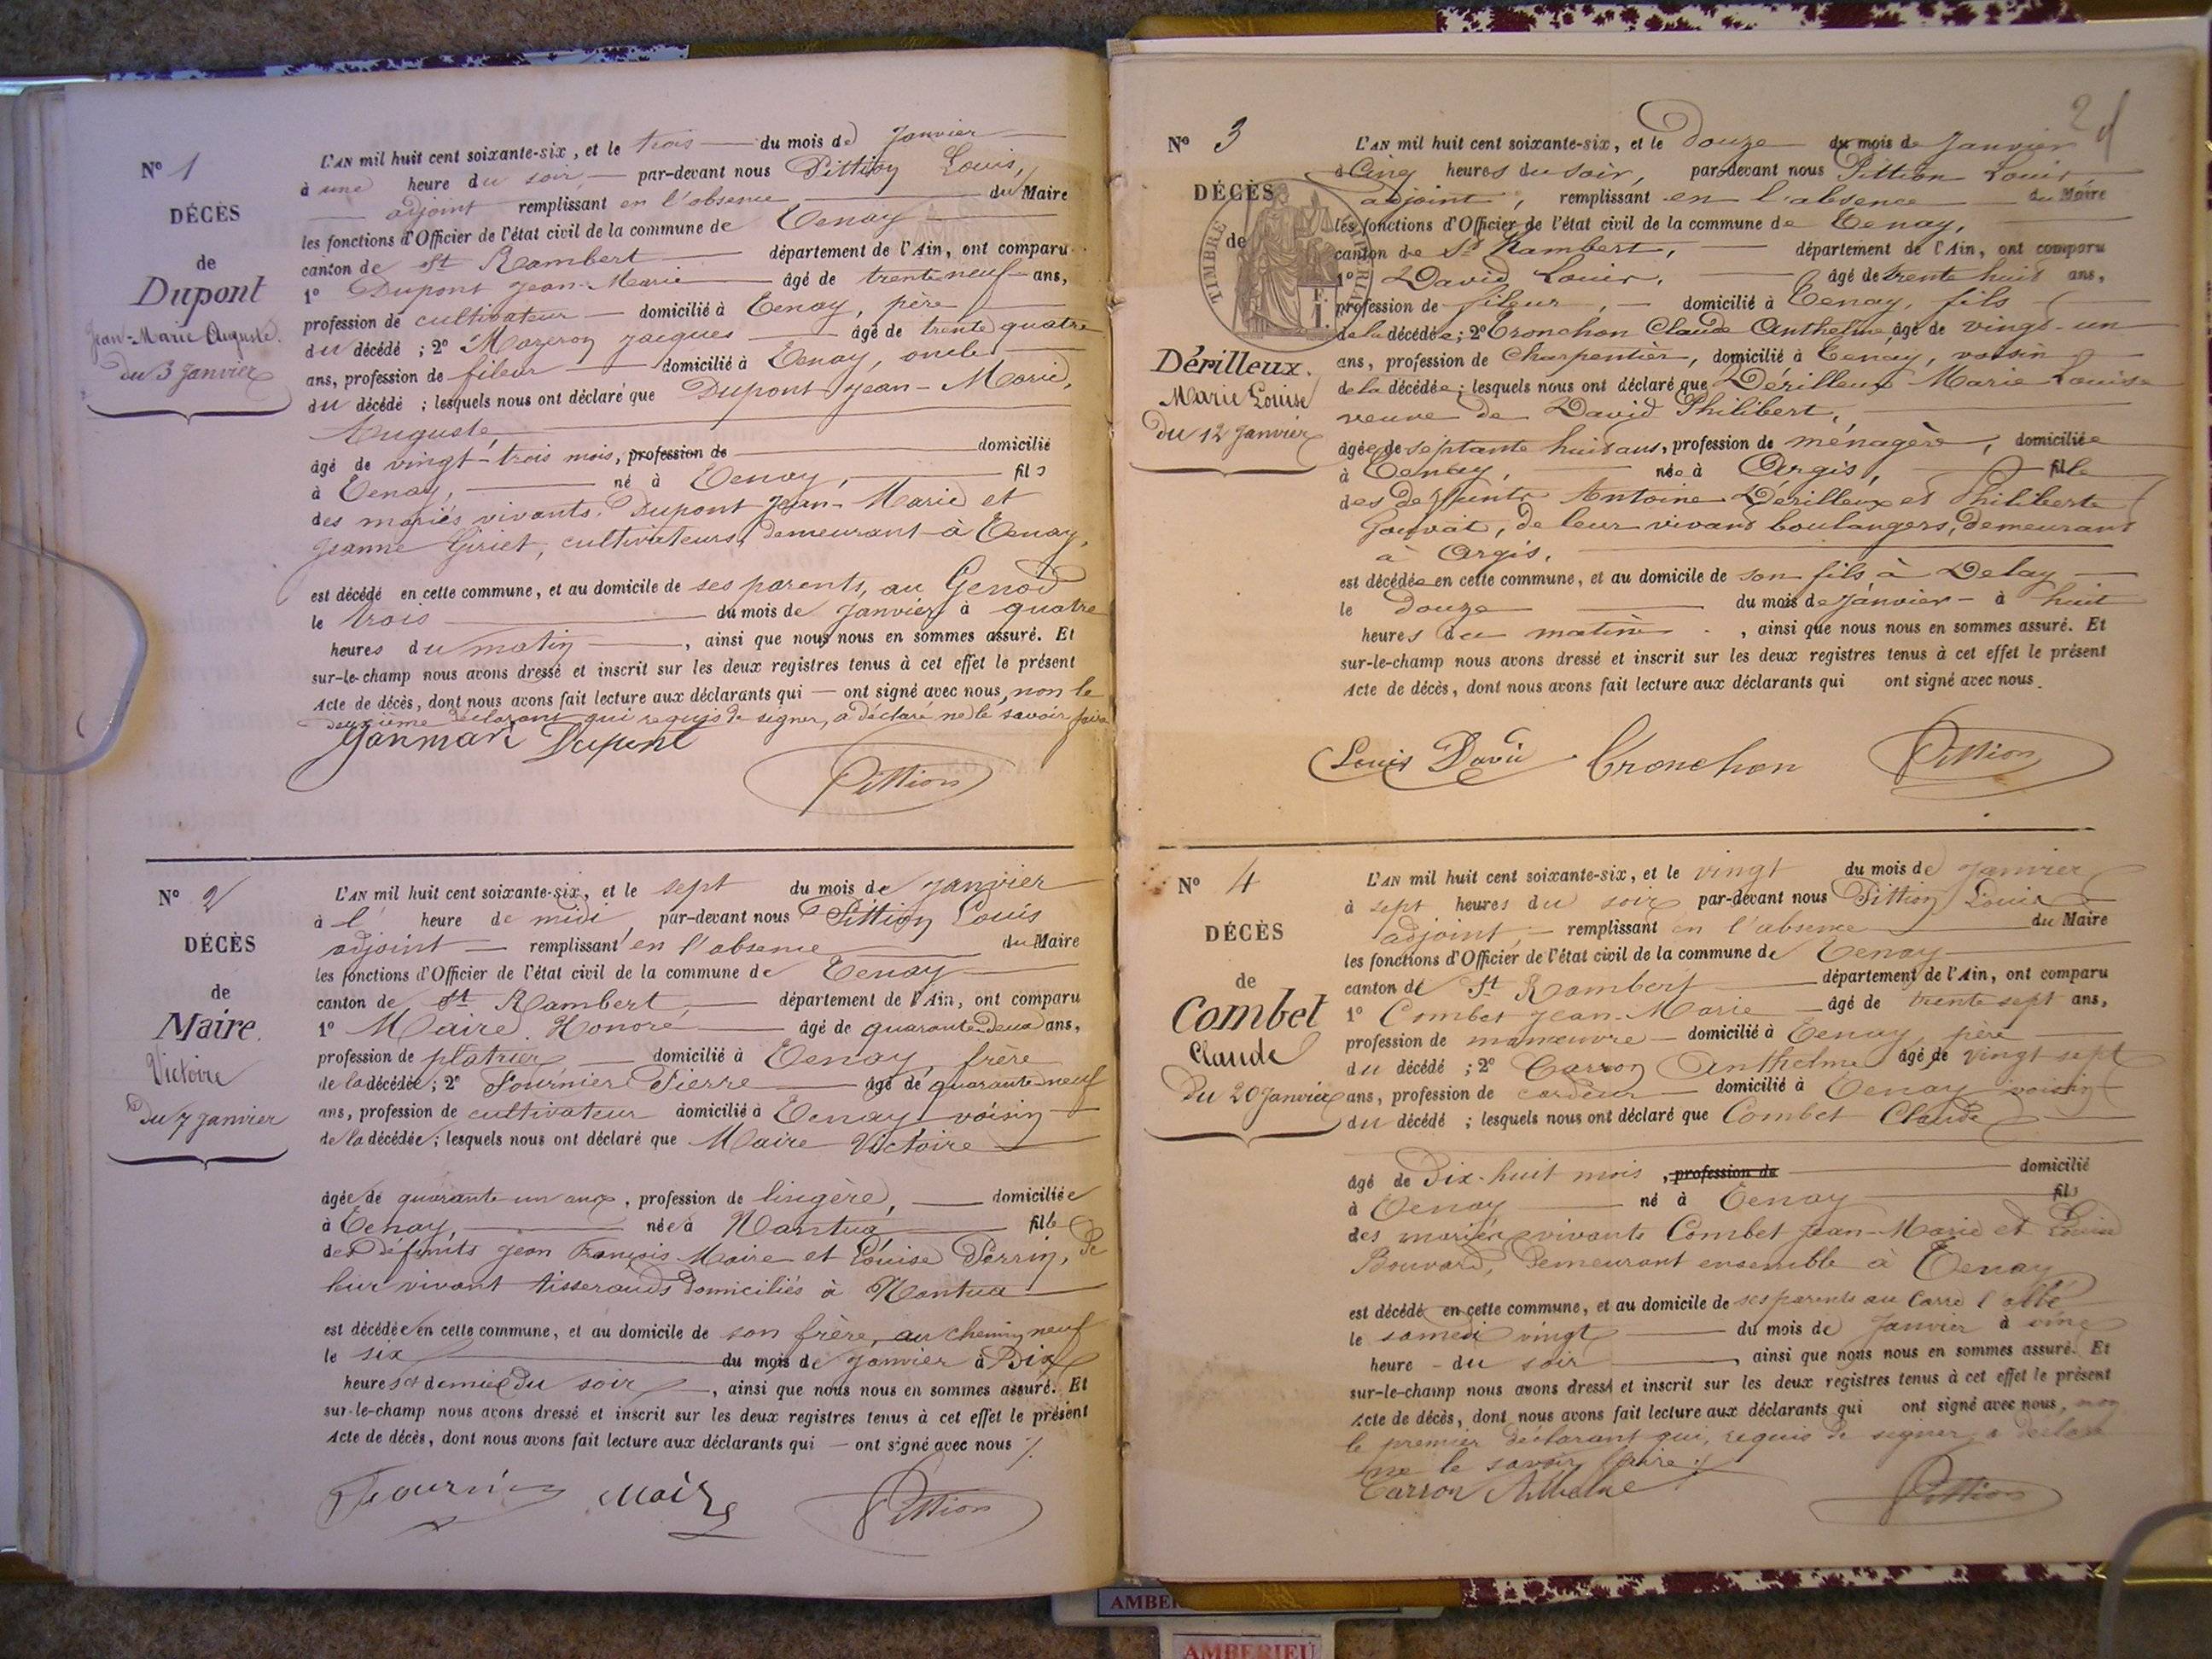 N° 1
DÉCÈS
de
Dupont
Jean-Marie Auguste.
du 3 Janvier
L'AN mil huit cent soixante-six, et le trois du mois de Janvier
à une heure du soir, par-devant nous Pittion Louis,
adjoint remplissant en l'absence du Maire
les fonctions d'Officier de l'état civil de la commune de Tenay
canton de St Rambert département de l'Ain, ont comparu
1° Dupont Jean-Marie âgé de trente neuf ans,
profession de cultivateur domicilié à Tenay, père
du décédé ; 2° Mazeron Jacques âgé de trente quatre
ans, profession de fileur domicilié à Tenay, oncle
du décédé ; lesquels nous ont déclaré que Dupont Jean-Marie,
Auguste,
âgé de vingt-trois mois, profession de domicilié
à Tenay, né à Tenay, fils
des mariés vivants Dupont Jean-Marie et
Jeanne Giriet, cultivateurs, demeurant à Tenay,
est décédé en cette commune, et au domicile de ses parents, au Genod
le trois du mois de Janvier à quatre
heures du matin, ainsi que nous nous en sommes assuré. Et
sur-le-champ nous avons dressé et inscrit sur les deux registres tenus à cet effet le présent
Acte de décès, dont nous avons fait lecture aux déclarants qui ont signé avec nous, non le
deuxième déclarant qui requis de signer, a déclaré ne le savoir faire
Janmari Dupont
Pittion
N° 2
DÉCÈS
de
Maire.
Victoire
du 7 Janvier
L'AN mil huit cent soixante-six, et le sept du mois de Janvier
à l' heure de midi, par-devant nous Pittion Louis
adjoint remplissant en l'absence du Maire
les fonctions d'Officier de l'état civil de la commune de Tenay
canton de St Rambert, département de l'Ain, ont comparu
1° Maire Honoré âgé de quarante-deux ans,
profession de plâtrier domicilié à Tenay, frère
de la décédée ; 2° Fournier Pierre âgé de quarante neuf
ans, profession de cultivateur domicilié à Tenay, voisin
de la décédée ; lesquels nous ont déclaré que Maire Victoire
âgée de quarante un ans, profession de lingère, domiciliée
à Tenay, née à Nantua fille
des défunts Jean François Maire et Louise Perrin, de
leur vivant tisserands domiciliés à Nantua
est décédée en cette commune, et au domicile de son frère, au chemin neuf
le six du mois de Janvier à Dix
heures et demie du soir, ainsi que nous nous en sommes assuré. Et
sur-le-champ nous avons dressé et inscrit sur les deux registres tenus à cet effet le présent
Acte de décès, dont nous avons fait lecture aux déclarants qui ont signé avec nous
Maire
Pittion
2
N° 3
DÉCÈS
de
TIMBRE
Dérilleux.
Marie Louise
du 12 Janvier
L'AN mil huit cent soixante-six, et le Douze du mois de Janvier
à Cinq heures du soir, par-devant nous Pittion Louis
adjoint, remplissant en l'absence du Maire
les fonctions d'Officier de l'état civil de la commune de Tenay,
canton de St Rambert, département de l'Ain, ont comparu
1° David Louis, âgé de trente huit ans,
profession de fileur, domicilié à Tenay, fils
de la décédée ; 2° Tronchon Claude Anthelme âgé de vingt-un
ans, profession de Charpentier, domicilié à Tenay, voisin
de la décédée ; lesquels nous ont déclaré que Dérilleux Marie Louise
veuve de David Philibert,
âgée de septante huit ans, profession de ménagère, domiciliée
à Tenay, née à Argis, fille
des defunts Antoine Dérilleux et Philiberte
Jouvat, de leur vivant boulangers, demeurant
à Argis.
est décédée en cette commune, et au domicile de son fils à Delay
le douze du mois de Janvier à huit
heures du matin, ainsi que nous nous en sommes assuré. Et
sur-le-champ nous avons dressé et inscrit sur les deux registres tenus à cet effet le présent
Acte de décès, dont nous avons fait lecture aux déclarants qui ont signé avec nous
Louis David Tronchon Pittion
N° 4
DÉCÈS
de
Combet
Claude
Du 20 Janvier
L'AN mil huit cent soixante-six, et le vingt du mois de Janvier
à sept heures du soir par-devant nous Pittion Louis
adjoint, remplissant en l'absence du Maire
les fonctions d'Officier de l'état civil de la commune de Tenay
canton de St Rambert département de l'Ain, ont comparu
1° Combet Jean-Marie âgé de trente sept ans,
profession de manœuvre domicilié à Tenay, père
du décédé ; 2° Carron Anthelme âgé de vingt sept
ans, profession de cardeur domicilié à Tenay voisin
du décédé ; lesquels nous ont déclaré que Combet Claude
âgé de Dix-huit mois, profession de domicilié
à Tenay né à Tenay fils
des mariés vivants Combet Jean-Marie et Louise
Bouvard, demeurant ensemble à Tenay
est décédé en cette commune, et au domicile de ses parents au Carré l'abbé
le samedi vingt du mois de Janvier à
heure du soir, ainsi que nous nous en sommes assuré. Et
sur-le-champ nous avons dressé et inscrit sur les deux registres tenus à cet effet le présent
Acte de décès, dont nous avons fait lecture aux déclarants qui ont signé avec nous, non
le premier déclarant qui, requis de signer, a déclaré
ne le savoir faire
Carron Anthelme
Pittion
AMBERIEU